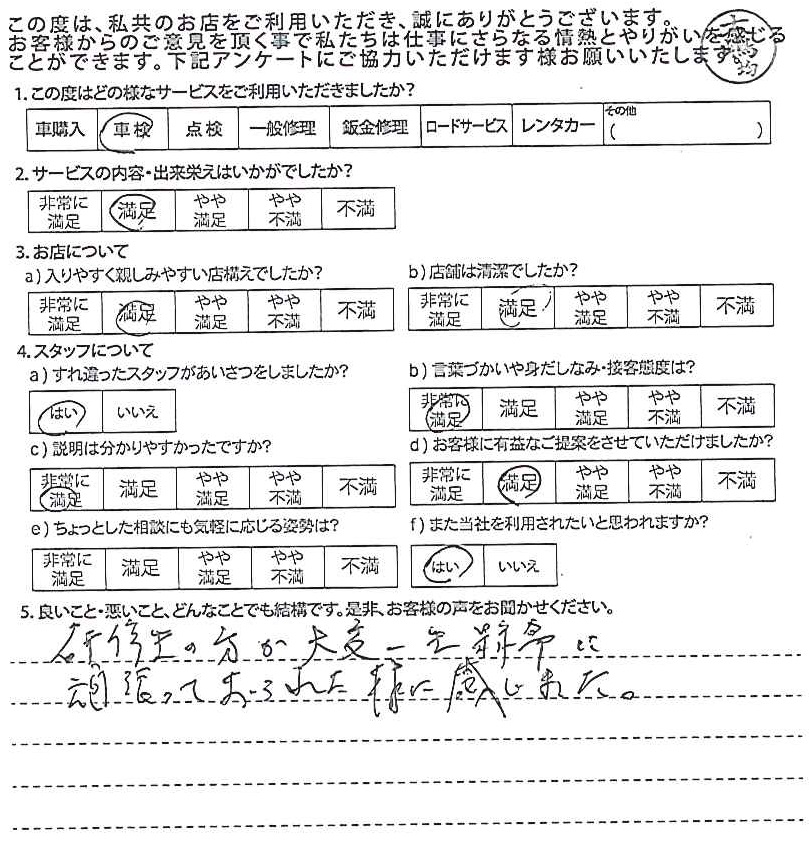 この度は、私共のお店をご利用いただき、誠にありがとうございます。
お客様からのご意見を頂く事で私たちは仕事にさらなる情熱とやりがいを感じる
ことができます。下記アンケートにご協力いただけます様お願いいたします。
1.この度はどの様なサービスをご利用いただきましたか?
車購入 車検 点検 一般修理 鈑金修理 ロードサービス レンタカー その他 ( )
2.サービスの内容・出来栄えはいかがでしたか?
非常に満足 満足 やや満足 やや不満 不満
3.お店について
a)入りやすく親しみやすい店構えでしたか?
非常に満足 満足 やや満足 やや不満 不満
b)店舗は清潔でしたか?
非常に満足 満足 やや満足 やや不満 不満
4.スタッフについて
a)すれ違ったスタッフがあいさつをしましたか?
はい いいえ
b)言葉づかいや身だしなみ・接客態度は?
非常に満足 満足 やや満足 やや不満 不満
c)説明は分かりやすかったですか?
非常に満足 満足 やや満足 やや不満 不満
d)お客様に有益なご提案をさせていただけましたか?
非常に満足 満足 やや満足 やや不満 不満
e)ちょっとした相談にも気軽に応じる姿勢は?
非常に満足 満足 やや満足 やや不満 不満
f)また当社を利用されたいと思われますか?
はい いいえ
5.良いこと・悪いこと、どんなことでも結構です。是非、お客様の声をお聞かせください。
研修生の方が大変一生懸命に
頑張っておられた様に感じました。